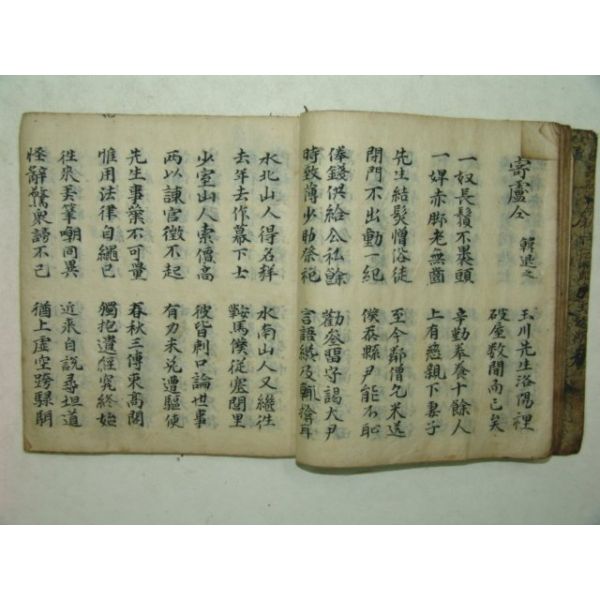 寄盧仝
韓退之
玉川先生洛陽裡
破屋數間而已矣
一奴長鬚不裹頭
一婢赤脚老無齒
辛勤奉養十餘人
上有慈親下妻子
先生結髮憎俗徒
閉門不出動一紀
至今鄰僧乞米送
僕忝縣尹能不恥
俸錢供給公私餘
時致薄少助祭祀
勸參留守謁大尹
言語纔及輒掩耳
水北山人得名聲
去年去作幕下士
水南山人又繼徃
鞍馬僕從塞閭里
少室山人索價高
兩以諫官徵不起
彼皆刺口論世事
有力未免遭驅使
先生事業不可量
惟用法律自繩己
春秋三傳束高閣
獨抱遺經究終始
徃年弄筆嘲同異
怪辭驚衆謗不已
近來自說尋坦道
猶上虛空跨騄駬